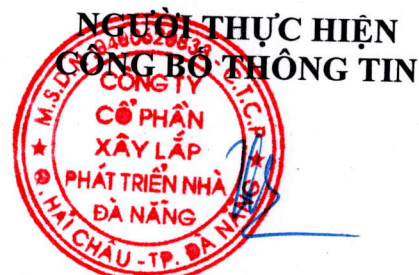 NGƯỜI THỰC HIỆN
CÔNG BỐ THÔNG TIN
M.S.D.N: 0400620833 - C.T.C.P
CÔNG TY
CỔ PHẦN
XÂY LẮP
PHÁT TRIỂN NHÀ
ĐÀ NẴNG
Q. HẢI CHÂU - TP. ĐÀ NẴNG